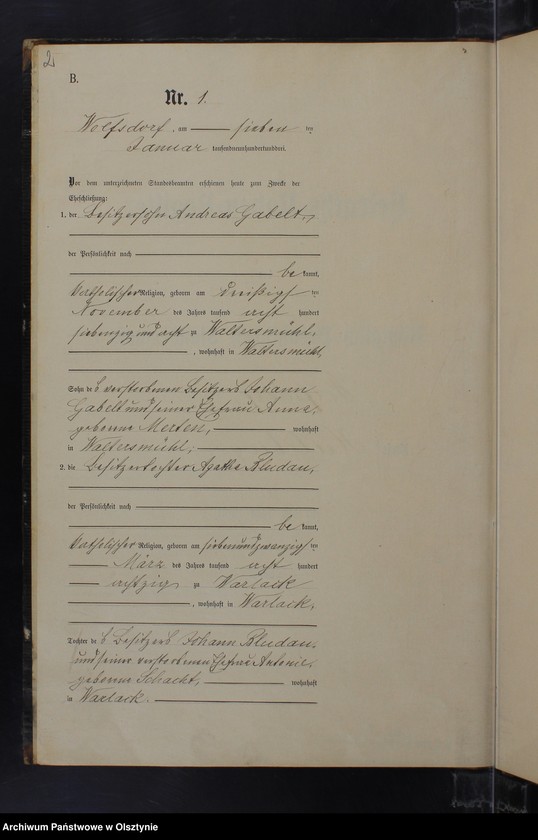 2
B.
Nr. 1.
Wolfsdorf, am sieben ten
Januar tausendneunhundertunddrei.
Vor dem unterzeichneten Standesbeamten erschienen heute zum Zwecke der
Eheschließung:
1. der Besitzersohn Andreas Gabelt,
der Persönlichkeit nach
be kannt,
katholischer Religion, geboren am dreißigs ten
November des Jahres tausend acht hundert
siebenzig und acht zu Waltersmühl,
, wohnhaft in Waltersmühl,
Sohn des verstorbenen Besitzers Johann
Gabelt und seiner Ehefrau Anna,
geborene Merten, wohnhaft
in Waltersmühl,
2. die Besitzertochter Agathe Bludau,
der Persönlichkeit nach
be kannt,
katholischer Religion, geboren am siebenundzwanzigs ten
März des Jahres tausend acht hundert
achtzig zu Warlack
, wohnhaft in Warlack,
Tochter des Besitzers Johann Bludau,
und seiner verstorbenen Ehefrau Antonie,
geborene Schacht, wohnhaft
in Warlack.
Archiwum Państwowe w Olsztynie